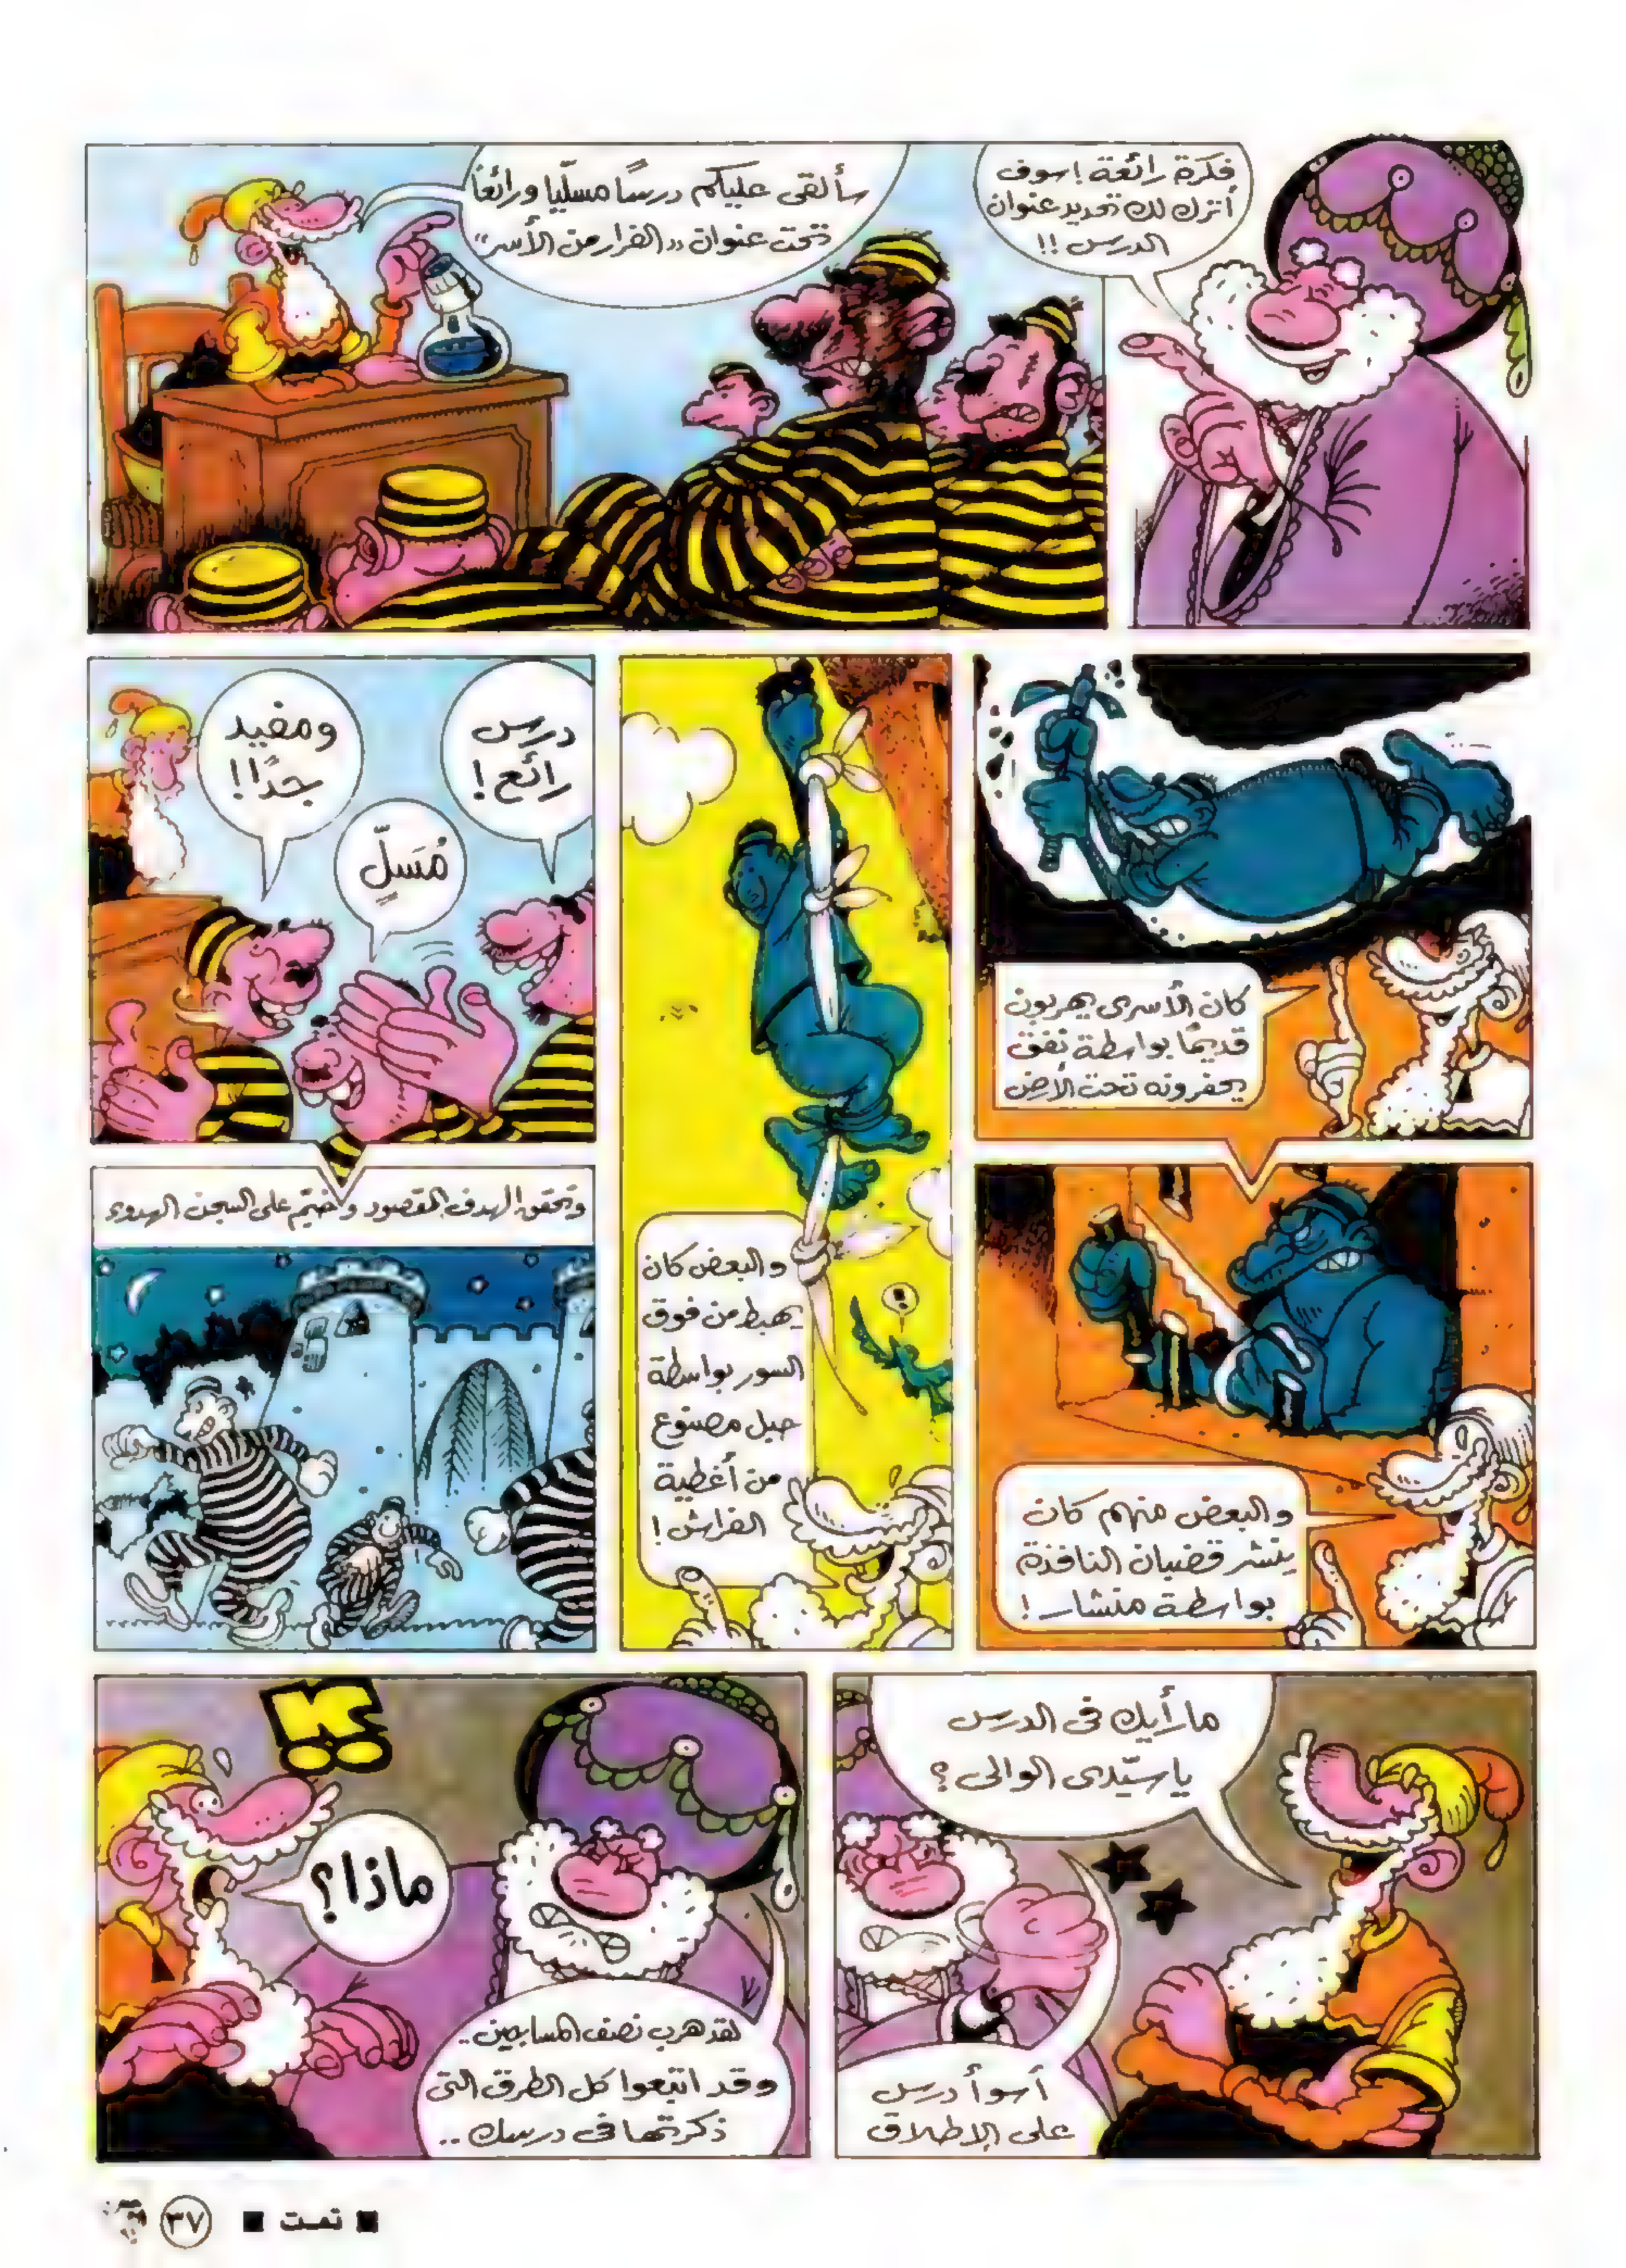 فكرة رائعة ! سوف
أترك لك تحديد عنوان
الدرس !!
سألقى عليكم درسًا مسلّيا ورائعًا
تحت عنوان ,, الفرار من الأسر ,,
كان الأسرى يهربون
قديمًا بواسطة نفق
يحفرونه تحت الأرض
والبعض منهم كان
ينشر قضبان النافذة
بواسطة منشار !
والبعض كان
يهبط من فوق
السور بواسطة
حبل مصنوع
من أغطية
الفراش !
!
درس
رائع !
مُسَلٍّ
ومفيد
جدًا !
وتحقق الهدف المقصود وخيّم على السجن الهدوء
ما رأيك فى الدرس
يا سيّدى الوالى ؟
أسوأ درس
على الإطلاق
لقد هرب نصف المساجين ..
وقد اتبعوا كل الطرق التى
ذكرتها فى درسك ..
ماذا ؟
!!
■ تمت ■
٣٧